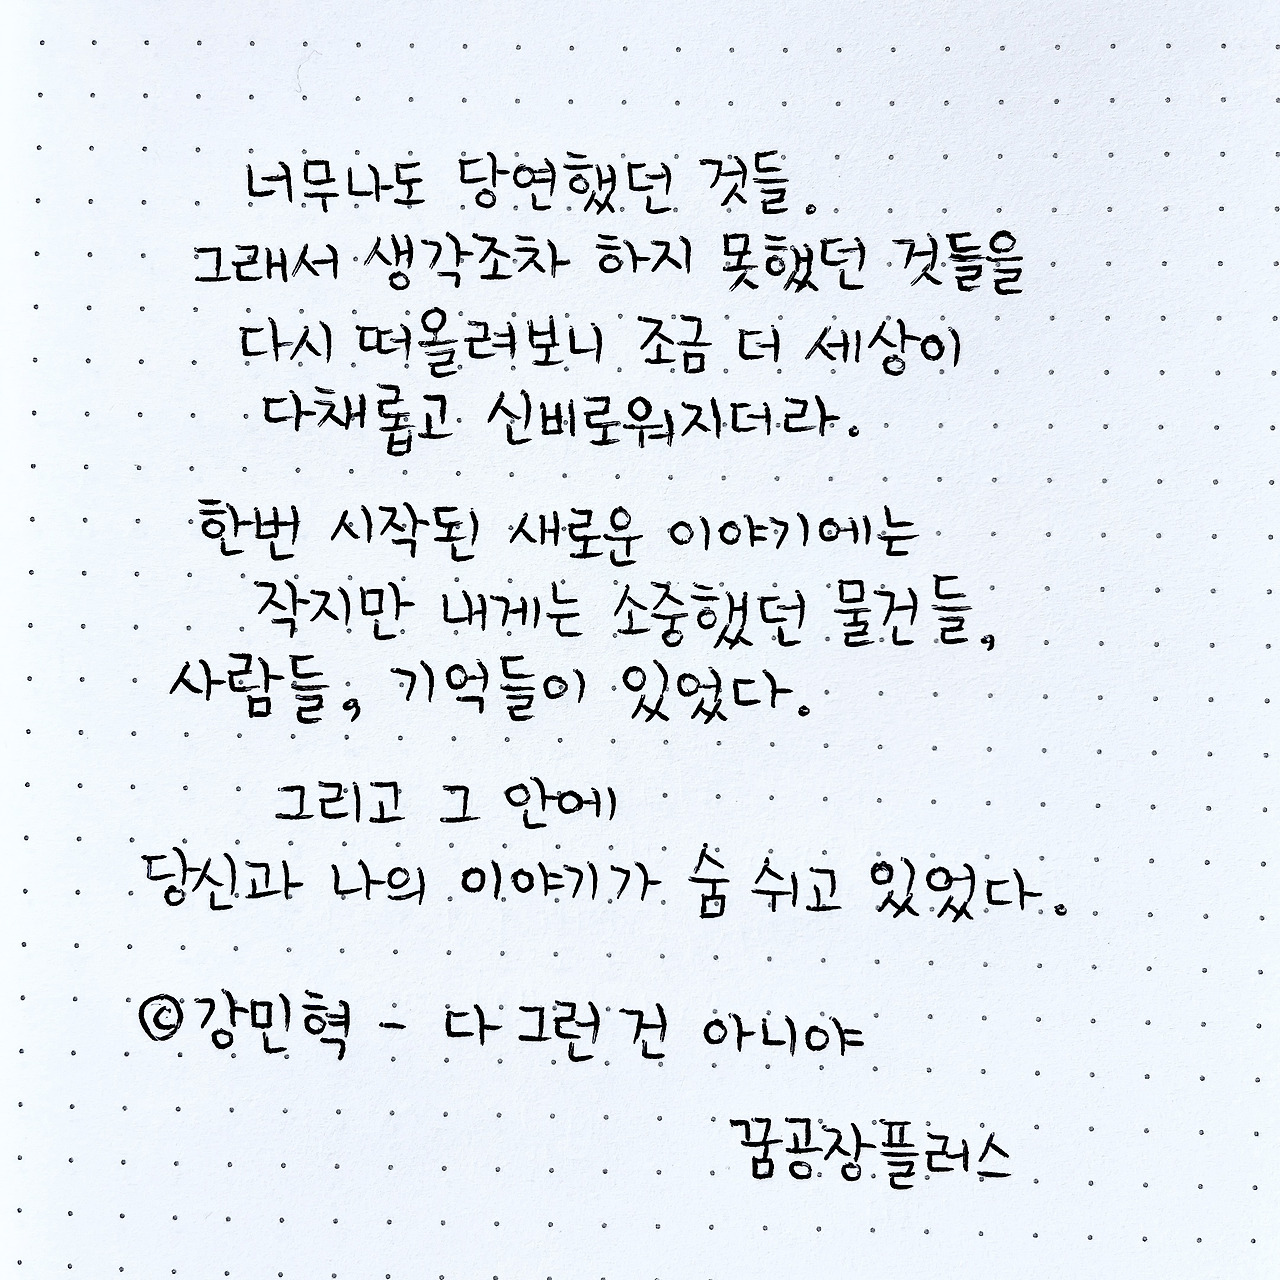 너무나도 당연했던 것들.
그래서 생각조차 하지 못했던 것들을
다시 떠올려보니 조금 더 세상이
다채롭고 신비로워지더라.
한번 시작된 새로운 이야기에는
작지만 내게는 소중했던 물건들,
사람들, 기억들이 있었다.
그리고 그 안에
당신과 나의 이야기가 숨 쉬고 있었다.
©강민혁 - 다 그런 건 아니야
꿈공장플러스